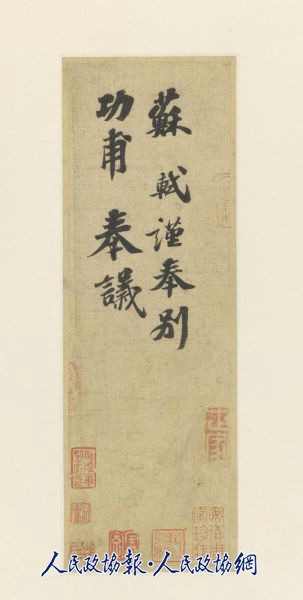 蘇軾謹奉別
功甫奉議
人民政協報·人民政協網